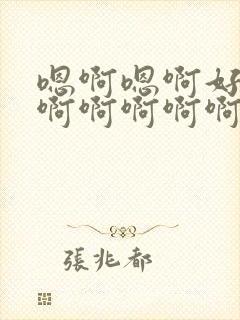 嗯啊嗯啊好
啊啊啊啊啊
張兆都